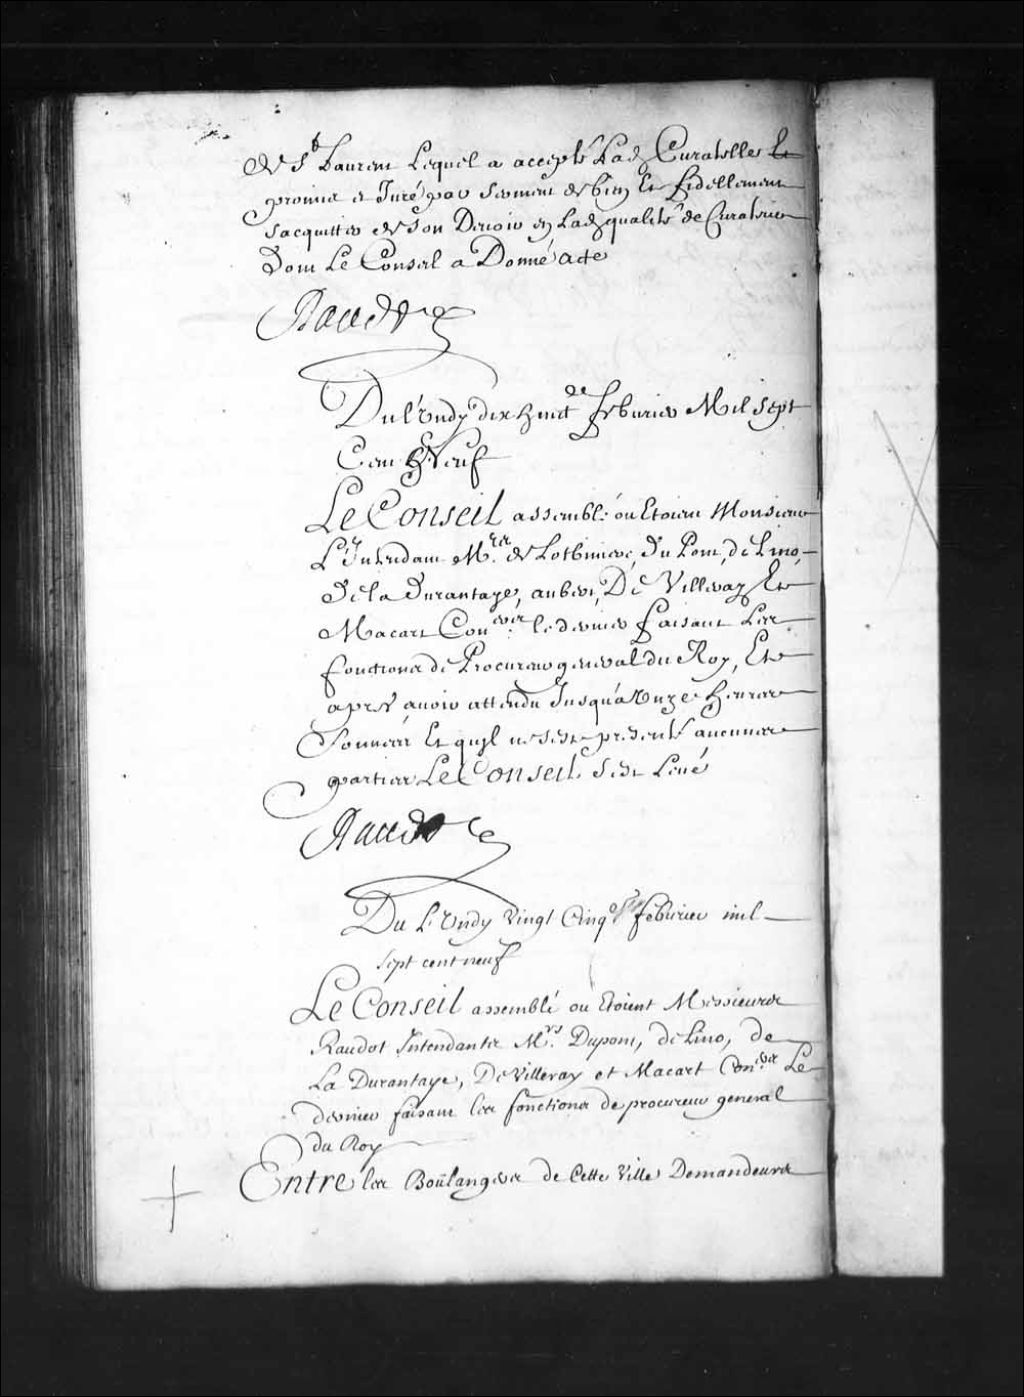 de St Laurent Lequel a accepté Lad. Curatelle Et
promis et Juré par serment de bien Et fidellement
sacquitter de son Devoir en Lad. qualité de Curateur
dont Le Conseil a Donné acte
Raudot
Du Lundy dix huite. feburier Mil sept
Cent Neuf
Le Conseil assemblé ou Etoient Monsieur
L'Intendant Mrs. de Lotbiniere, Du Pont, de Lino,
de la durantaye, aubert, De Villeray Et
Macart Coners. le dernier faisant Les
fonctions de Procureur general du Roy, Et
aprés avoir attendu Jusqu'a Unze heures
Sonnées Et quyl ne sest presenté aucunes
parties Le Conseil sest Levé
Raudot
Du Lundy vingt Cinqe. feburier mil
sept cent neuf
Le Conseil assemblé ou Etoient Messieurs
Raudot Intendants Mrs. Dupont, de Lino, de
La Durantaye, De Villeray et Macart Coners Le
dernier faisant les fonctions de procureur general
du Roy
Entre les Boulangers de Cette Ville Demandeurs